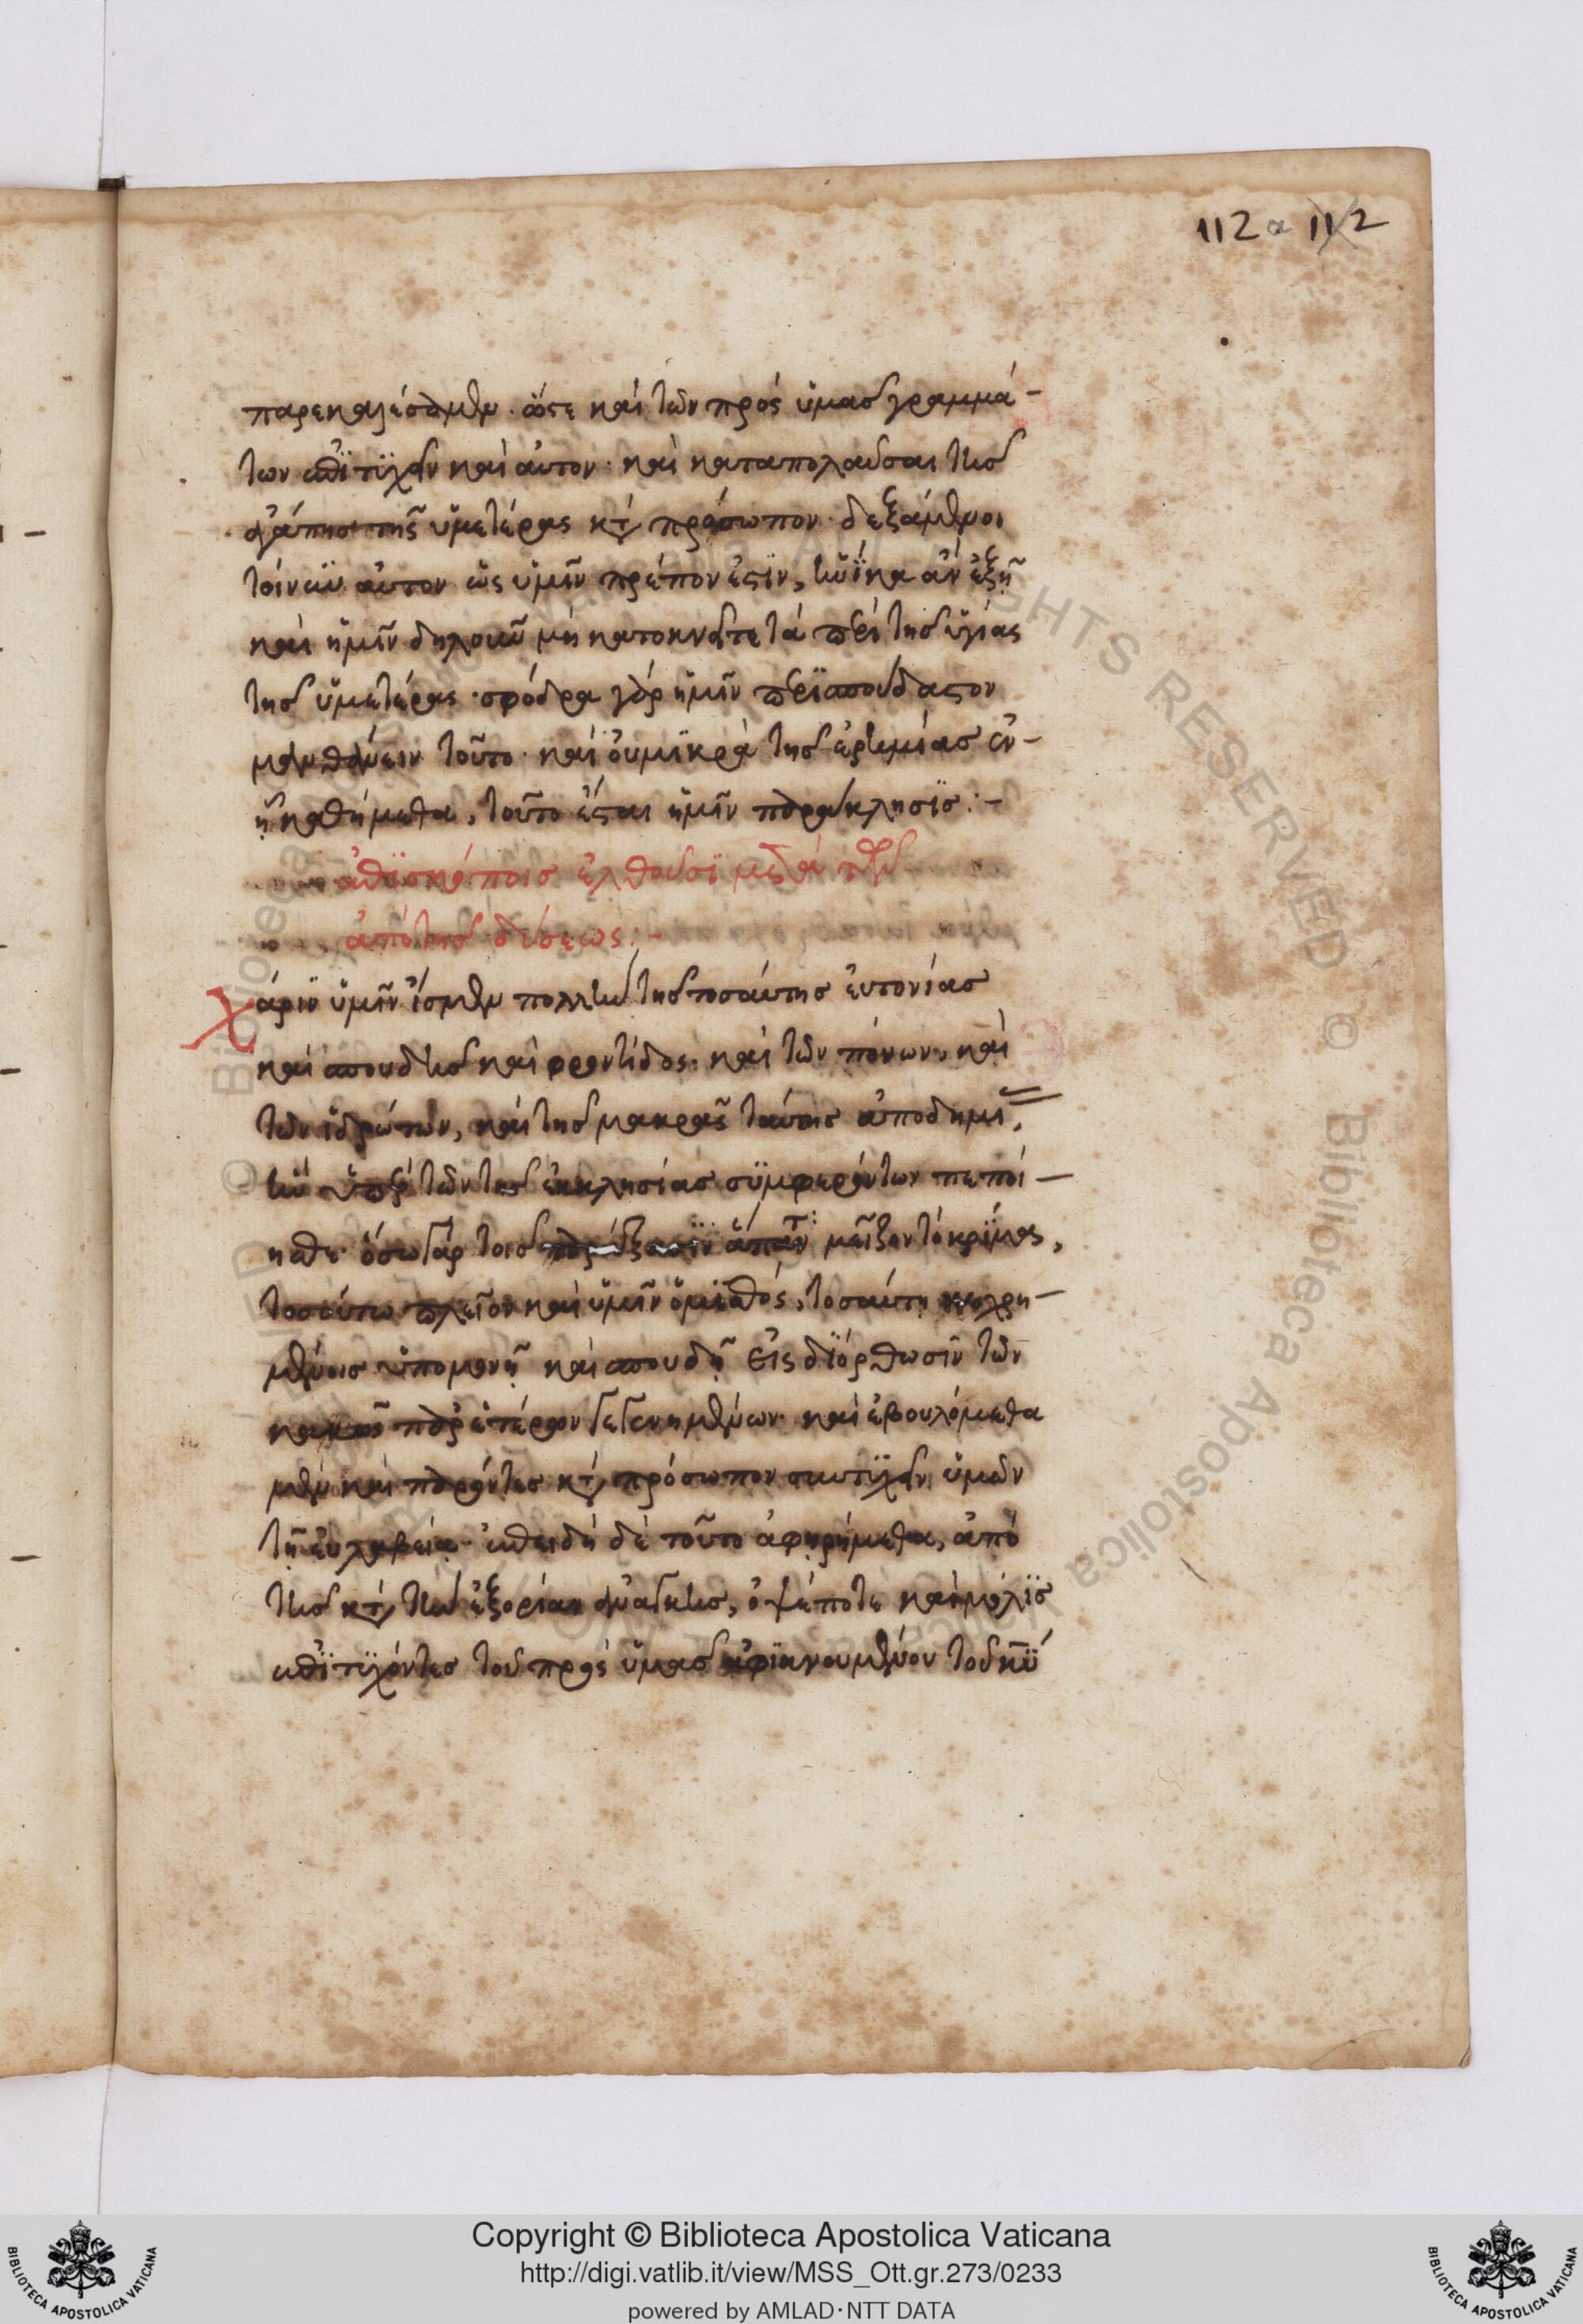 112a 112
παρεκαλέσαμεν. ὥστε καὶ τῶν πρὸς ὑμᾶς γραμμά-
των ἐπιτυχεῖν καὶ αὐτὸν. καὶ καταπολαῦσαι τῆς
ἀγάπης τῆς ὑμετέρας κατὰ πρόσωπον. δεξάμενοι
τοίνυν αὐτὸν ὡς ὑμῖν πρέπον ἐστὶν, ἡνίκα ἂν ἐξῇ
καὶ ἡμῖν δηλοῦν μὴ κατοκνεῖτε τὰ περὶ τῆς ὑγίας
τῆς ὑμετέρας. σφόδρα γὰρ ἡμῖν περισπούδαστον
μανθάνειν τοῦτο. καὶ οὐ μικρὰ τῆς ἐρημίας ἐν-
ᾗ καθήμεθα, τοῦτο ἔσται ἡμῖν παράκλησις:-
ἐπισκόποις ἐλθοῦσι μετὰ τῶν
ἀπὸ τῆς δύσεως:-
Χάριν ὑμῖν ἴσμεν πολλὴν τῆς τοσαύτης εὐτονίας
καὶ σπουδῆς καὶ φροντίδος. καὶ τῶν πόνων, καὶ
τῶν ἱδρώτων, καὶ τῆς μακρᾶς ταύτης ἀποδημί,
ἣν ὑπὲρ τῶν τῆς ἐκκλησίας συμφερόντων πεποί-
ησθε. ὅσω γὰρ τοῖς ταράξασιν ἅπαντα μεῖζον τὸ κρίμα,
τοσούτω πλεῖον καὶ ὑμῖν ὁ μισθός, τοσαύτη κεχρη-
μένοις ὑπομονῇ καὶ σπουδῇ εἰς διόρθωσιν τῶν
κακῶς παρ' ἑτέρων γεγενημένων. καὶ ἐβουλόμεθα
μὲν καὶ παρόντες κατὰ πρόσωπον συντυχεῖν ὑμῶν
τῇ εὐλαβείᾳ. ἐπειδὴ δὲ τοῦτο ἀφῃρήμεθα, ἀπὸ
τῆς κατὰ τὴν ἐξορίαν ἀνάγκης, ὀψέποτε καὶ μόλις
ἐπιτυχόντες τοῦ πρὸς ὑμᾶς ἀφικνουμένου τοῦ κυ
Copyright © Biblioteca Apostolica Vaticana
http://digi.vatlib.it/view/MSS_Ott.gr.273/0233
powered by AMLAD·NTT DATA